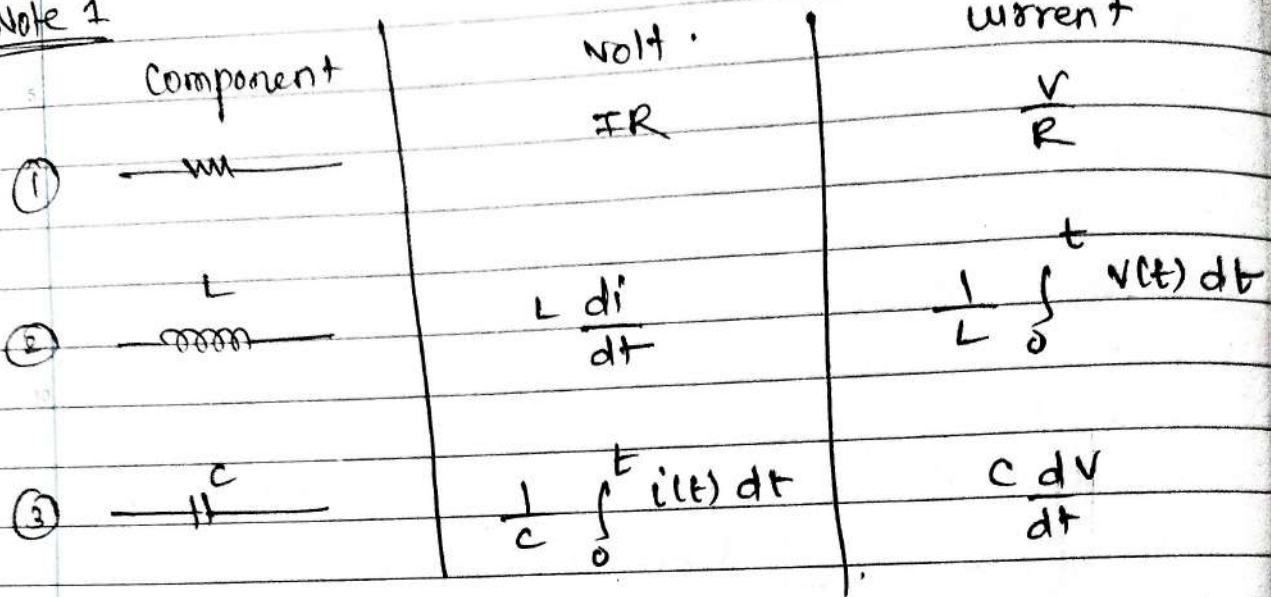 Note 1
Component | Volt. | Current
① | IR | V/R
② L | L di/dt | 1/L ∫₀ᵗ v(t) dt
③ C | 1/C ∫₀ᵗ i(t) dt | C dV/dt